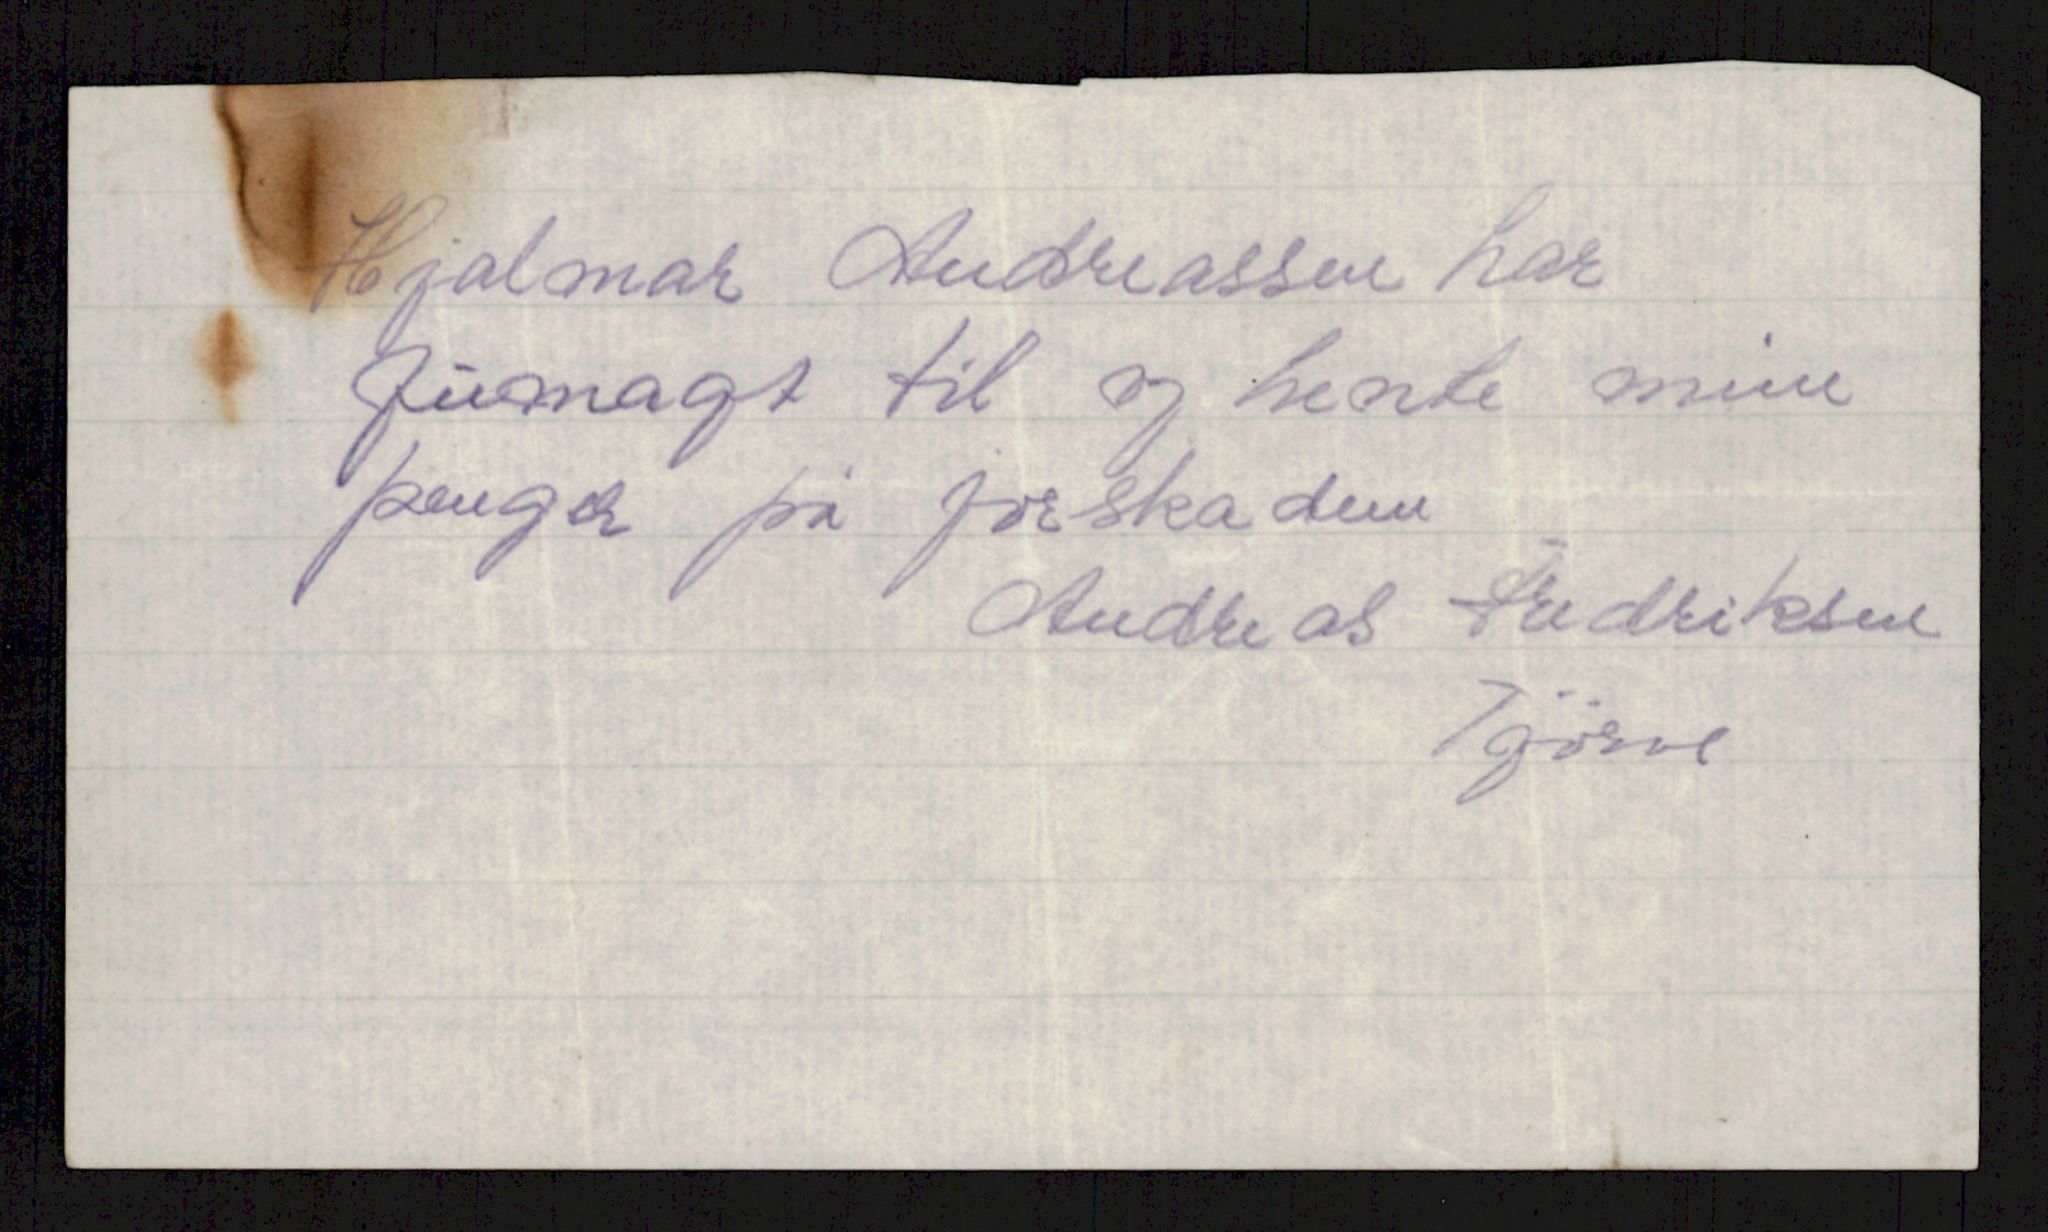 Hjalmar Andreassen har
fúlmagt til og hente mine
penger på jorskaden
Andreas Fredriksen
Tjörve